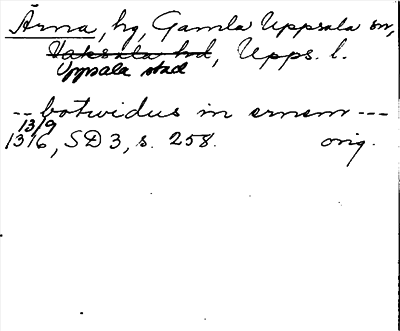 Ärna, hg, Gamla Uppsala sn,
Vaksala hd, Upps. l.
Uppsala stad
-- botwidus in ernem ---
13/9
1316, SD 3, s. 258. orig.